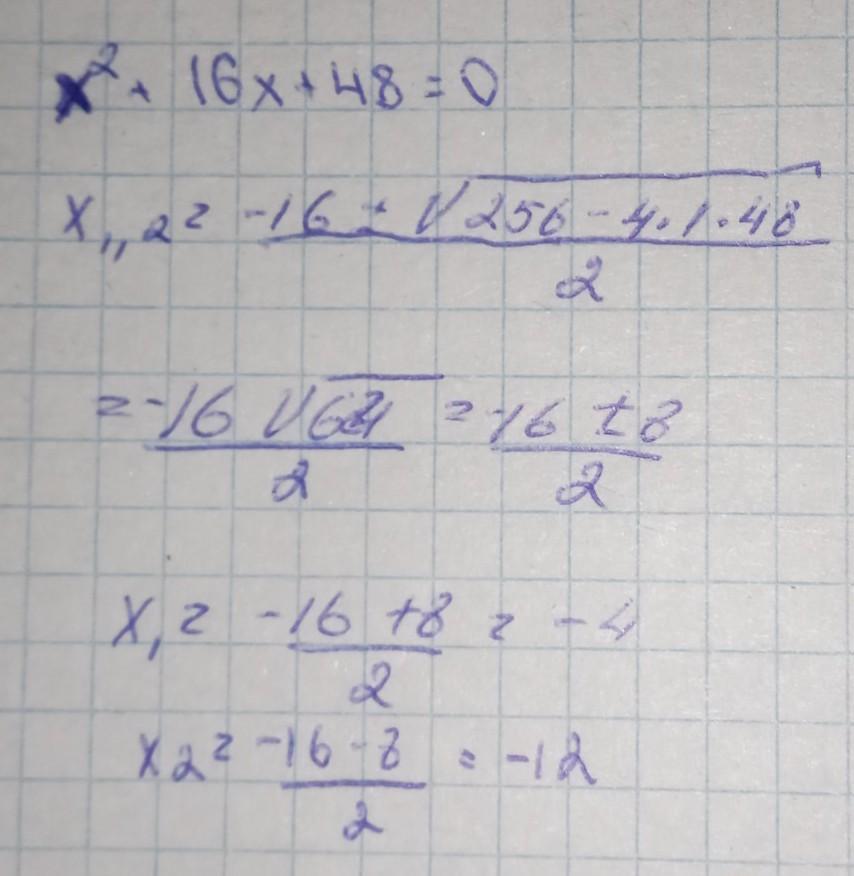 x² + 16x + 48 = 0
x₁,₂ = (-16 ± √(256 - 4·1·48))/2
= (-16 √64)/2 = (-16 ± 8)/2
x₁ = (-16 + 8)/2 = -4
x₂ = (-16 - 8)/2 = -12